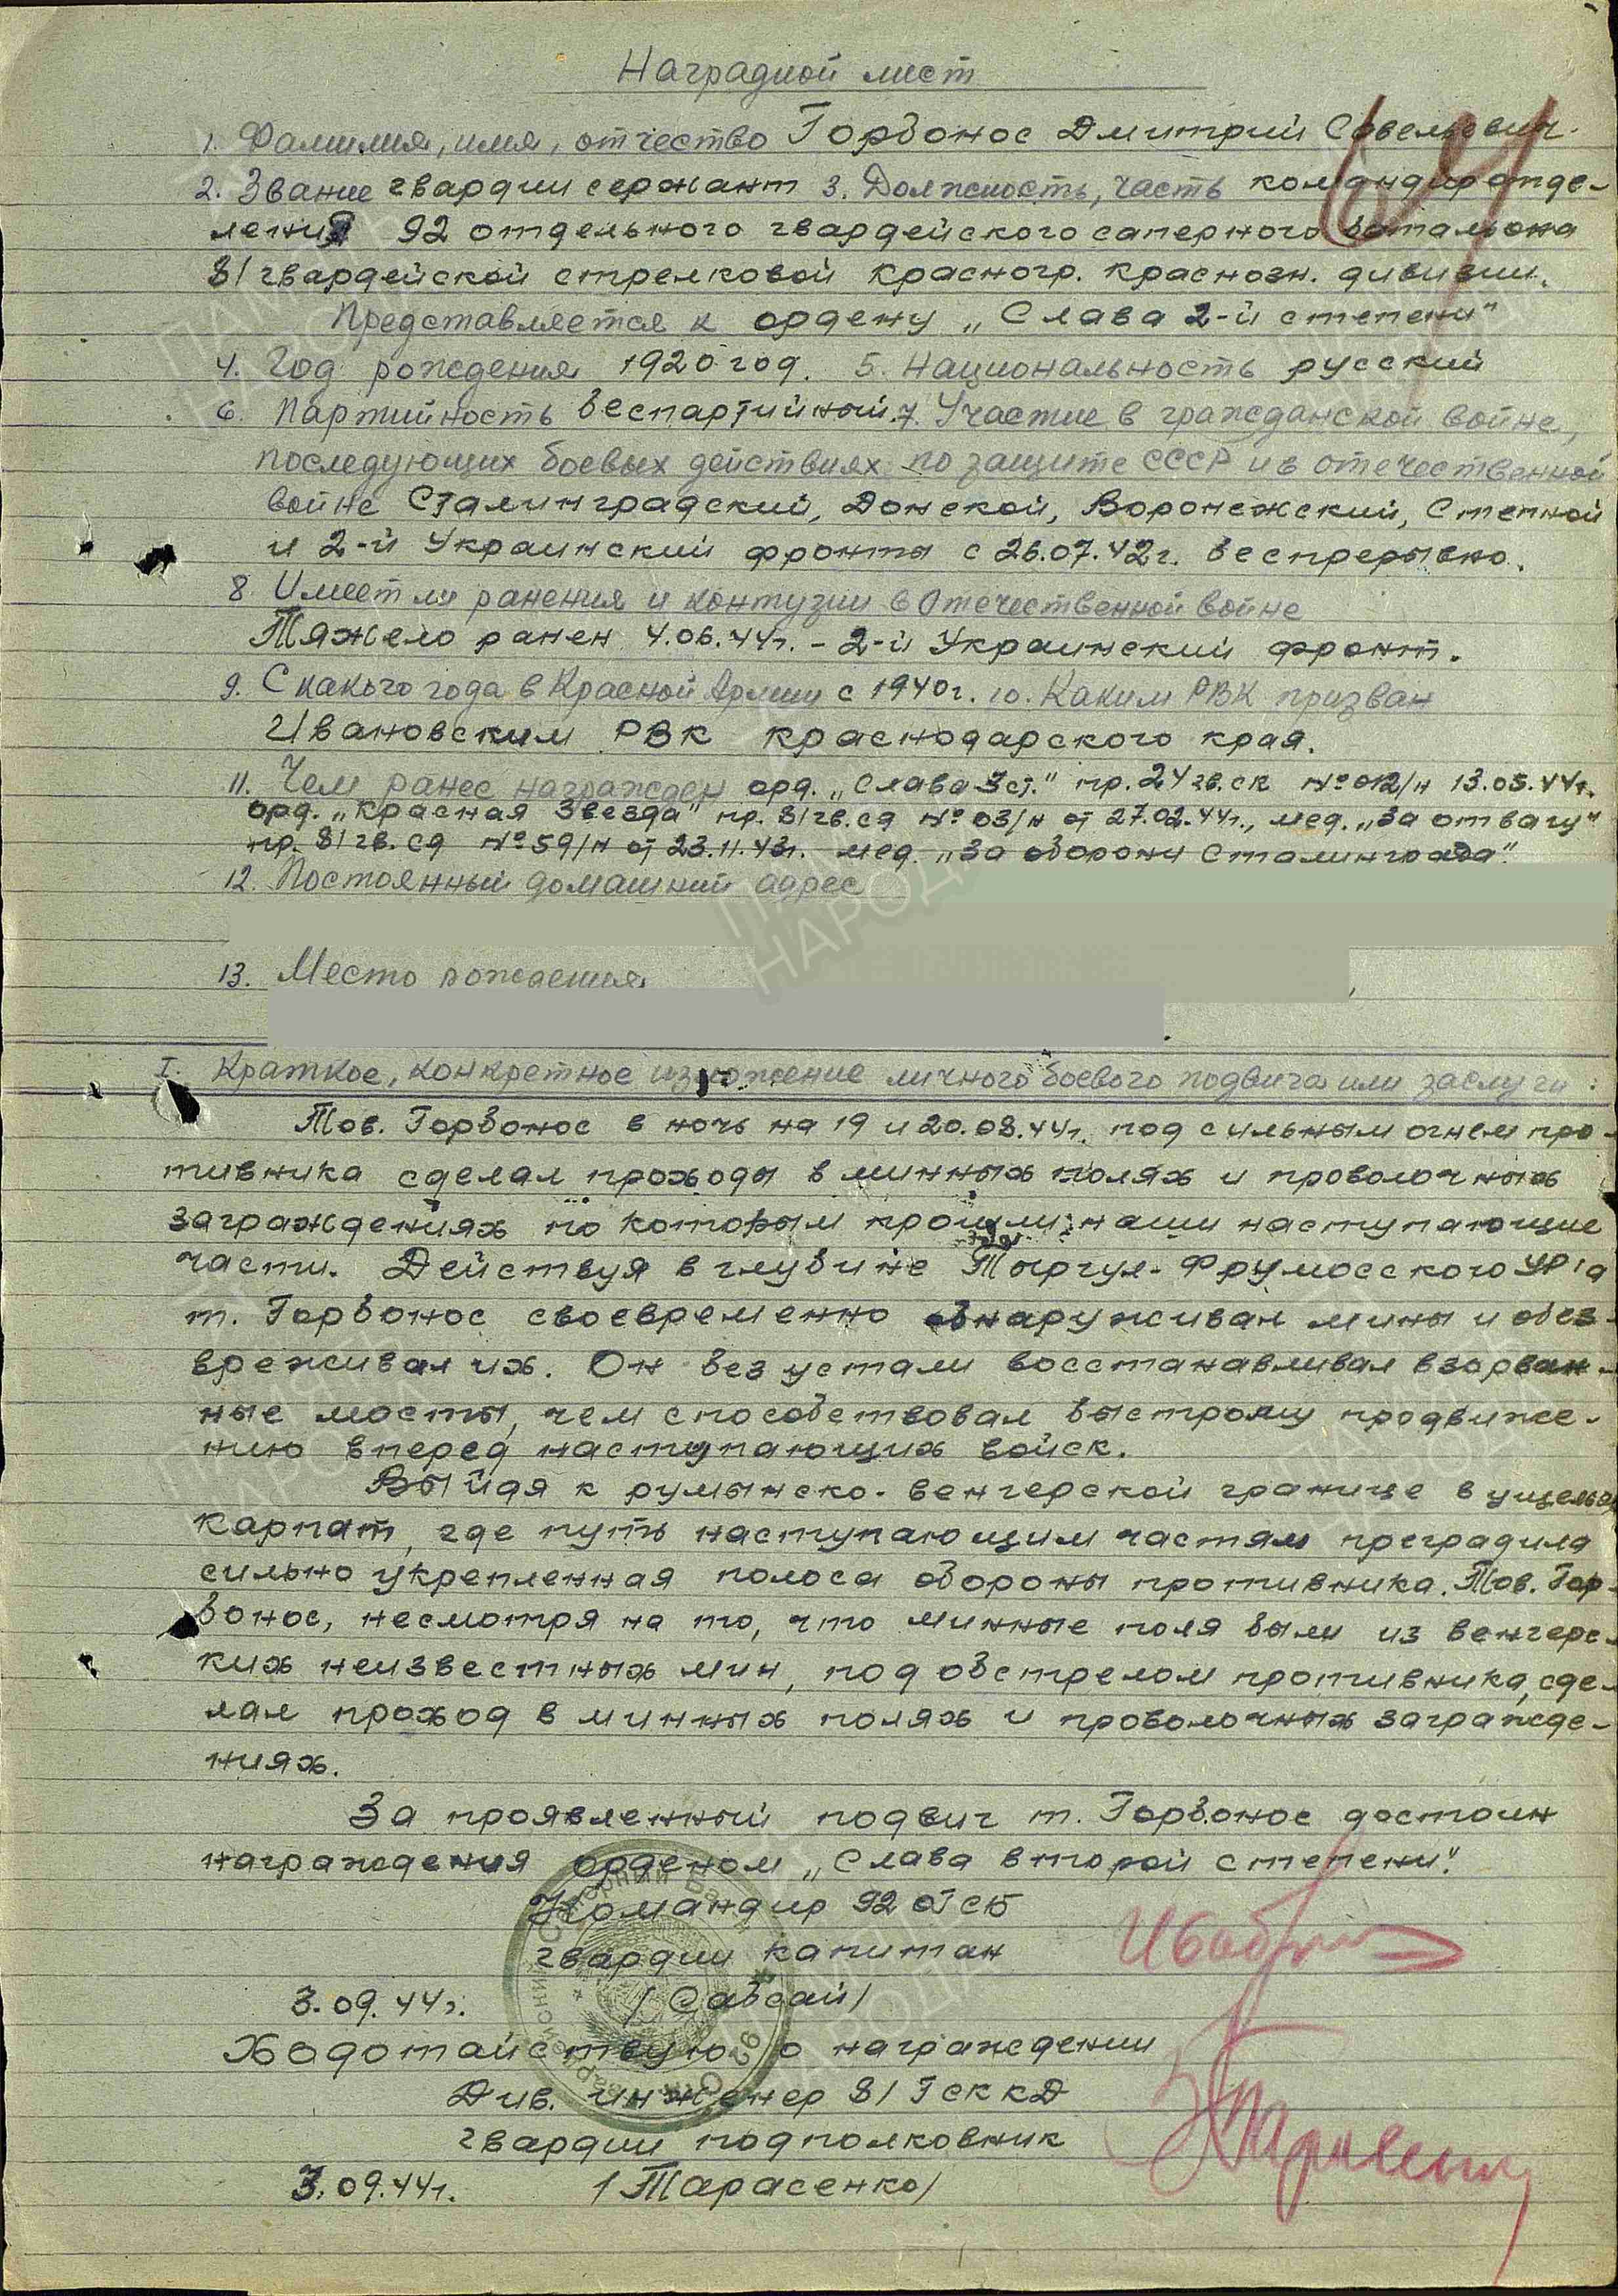 Наградной лист
1. Фамилия, имя, отчество Горбонос Дмитрий Савельевич.
2. Звание гвардии сержант 3. Должность, часть командир отде-
ления 92 отдельного гвардейского саперного батальона
81 гвардейской стрелковой красногр. краснозн. дивизии.
Представляется к ордену „Слава 2-й степени"
4. Год рождения 1920 год. 5. Национальность русский
6. Партийность беспартийный. 7. Участие в гражданской войне,
последующих боевых действиях по защите СССР и в отечественной
войне Сталинградский, Донской, Воронежский, Степной
и 2-й Украинский фронты с 26.07.42г. беспрерывно.
8. Имеет ли ранения и контузии в Отечественной войне
Тяжело ранен 4.06.44г. - 2-й Украинский фронт.
9. С какого года в Красной Армии с 1940г. 10. Каким РВК призван
Ивановским РВК краснодарского края.
11. Чем ранее награжден орд. „Слава 3 ст." пр. 24 гв. ск №012/н 13.05.44г.
орд. „Красная Звезда" пр. 81 гв. сд № 03/н от 27.02.44г., мед. „За отвагу"
пр. 81 гв. сд №59/н от 23.11.43г. мед. „За оборону Сталинграда".
12. Постоянный домашний адрес
13. Место рождения
I. Краткое, конкретное изложение личного боевого подвига или заслуги:
Тов. Горбонос в ночь на 19 и 20.08.44г. под сильным огнем про-
тивника сделал проходы в минных полях и проволочных
заграждениях по которым прошли наши наступающие
части. Действуя в глубине Тыргул-Фрумосского УР'а
т. Горбонос своевременно обнаруживал мины и обез-
вреживал их. Он без устали восстанавливал взорван-
ные мосты, чем способствовал быстрому продвиже-
нию вперед наступающих войск.
Выйдя к румынско-венгерской границе в ущелья
карпат, где путь наступающим частям преградила
сильно укрепленная полоса обороны противника. Тов. Гор-
бонос, несмотря на то, что минные поля были из венгерс-
ких неизвестных мин, под обстрелом противника, сде-
лал проход в минных полях и проволочных загражде-
ниях.
За проявленный подвиг т. Горбонос достоин
награждения орденом „Слава второй степени".
Командир 92 ОГСБ
гвардии капитан
3.09.44г. /Сабсай/
Ходотайствую о награждении
Див. инженер 81 ГСККД
гвардии подполковник
3.09.44г. /Тарасенко/